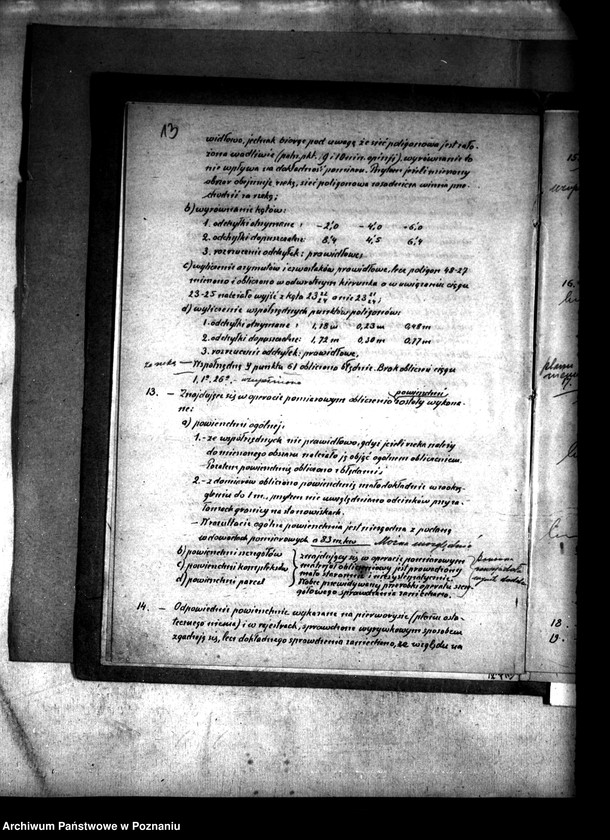 13
widłowo, jednak biorąc pod uwagę że sieć poligonowa jest zało-
żona wadliwie (patrz pkt. 9 i 10 nin. opinji), wyrównanie to
nie wpływa na dokładność pomiaru. Przytem jeżeli mierzony
obszar obejmuje rzekę, sieć poligonowa zasadniczo winna prze-
chodzić za rzekę;
b) wyrównanie kątów:
1. odchyłki otrzymane: -2,0 -4,0 -6,0
2. odchyłki dopuszczalne: 8,4 4,5 6,4
3. rozrzucenie odchyłek: prawidłowe;
c) wyliczenie azymutów i czwartaków prawidłowe, lecz poligon 48-27
mierzono i obliczano w odwrotnym kierunku a w związaniu ciągu
23-25 należało wyjść z kąta 23 22/24 a nie 23 21/24;
d) wyliczenie współrzędnych punktów poligonów:
1. odchyłki otrzymane: 1,18 m 0,23 m 0,48 m
2. odchyłki dopuszczalne: 1,72 m 0,30 m 0,77 m
3. rozrzucenie odchyłek: prawidłowe,
za rzeką — Współrzędną y punktu 61 obliczono błędnie. Brak obliczeń ciągu
1, 1ª, 26ª. - uzupełniono
13. — Znajdujące się w operacie pomiarowym obliczenia powierzchni zostały wykona-
ne:
a) powierzchni ogólnej:
1. - ze współrzędnych nie prawidłowo, gdyż jeżeli rzeka należy
do mierzonego obszaru należało ją objąć ogólnem obliczeniem.
Pozatem powierzchnię obliczono z błędami
2. - z domiarów obliczono powierzchnię mało dokładnie w zaokrą-
gleniu do 1 m., przytem nie uwzględniono odcinków przy za-
łamach granicy na stanowiskach.
— W rezultacie ogólna powierzchnia jest niezgodna z podaną
w dowodach pomiarowych o 83 m. kw. Można uwzględnić
b) powierzchni szczegółów
c) powierzchni kompleksów
d) powierzchni parcel
znajdujący się w operacie pomiarowym
materjał obliczeniowy jest prowadzony
mało starannie i niesystematycznie.
Wobec przewidywanej przeróbki operatu szcze-
gółowego sprawdzenia zaniechano.
14. — Odpowiednie powierzchnie wykazane na pierworysie (planu osta-
tecznego niema) i w rejestrach, sprawdzone wyrywkowym sposobem
zgadzają się, lecz dokładnego sprawdzenia zaniechano, ze względu na
15.
16.
planu
18.
19.
Archiwum Państwowe w Poznaniu